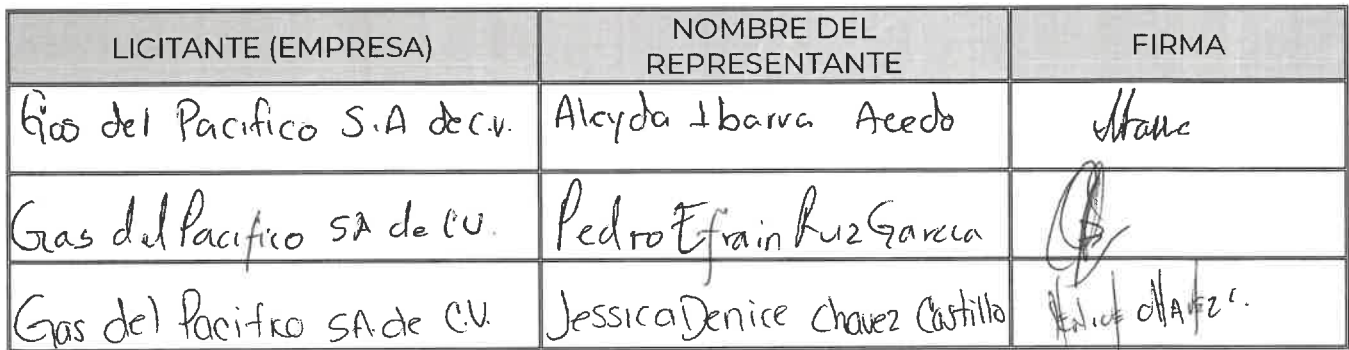 LICITANTE (EMPRESA) NOMBRE DEL REPRESENTANTE FIRMA
Gas del Pacifico S.A de c.v. Aleyda Ibarra Acedo
Gas del Pacifico SA de CV. Pedro Efrain Ruiz Garcia
Gas del Pacifico SA de C.V. Jessica Denice Chavez Castillo Denice CHAVEZ C.